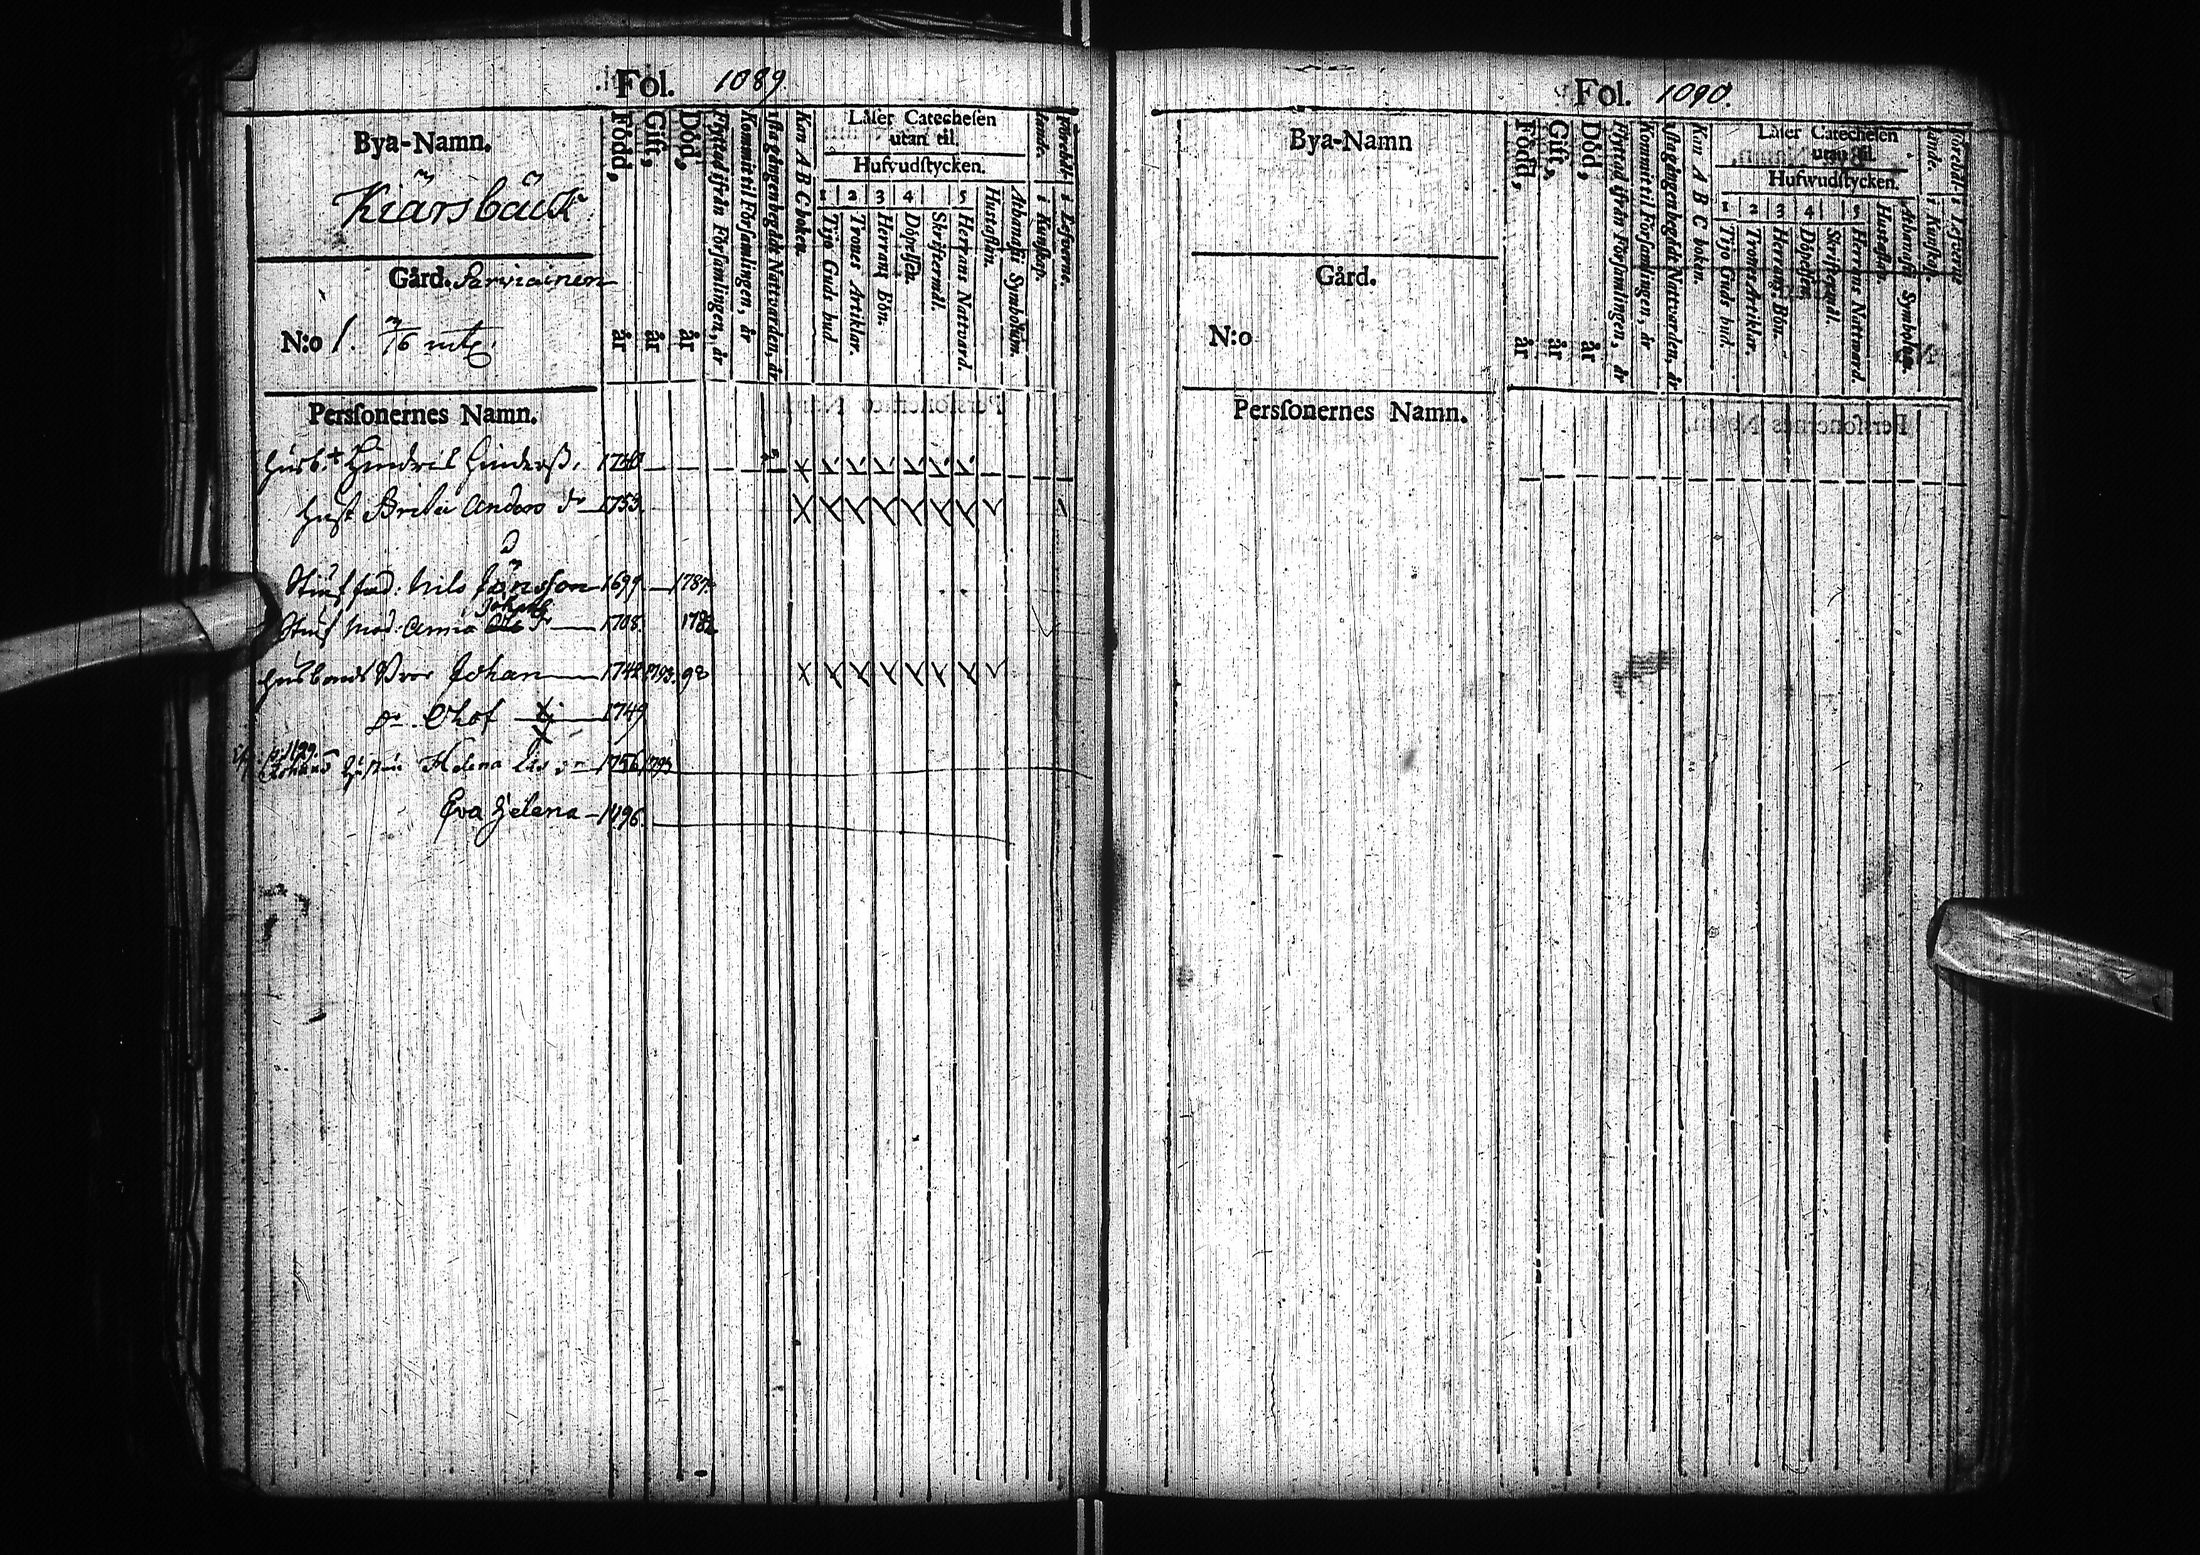 Fol. 1089.
Bya-Namn.
Kiärsbäck
Gård. Parviainen
N:o 1. 7/6 mtl.
Född, år
Gift, år
Död, år
Flyttad ifrån Församlingen, år
Kommit til Församlingen, år
1sta gången begådt Nattvarden, år
Kan A B C boken.
Låser Catechesen
utan til.
Hufvudstycken.
1 2 3 4 5
Tijo Guds bud.
Trones Artiklar.
Herrans Bön.
Döpelsen.
Skriftermål.
Herrans Nattvard.
Hustaflan.
Athanasii Symbolum.
i Kunskap.
i Lefverne.
Personernes Namn.
Husb. + Hindrich Hinderss. 1740
Hust Brita Anders dr 1753
Nils Jönsson 1699 1787
Johans
mod: Anna dr 1708 1782
Husbonds Bror Johan 1742 1793. 98
dr Olof 1749
Johans Hustru Helena Lars dr 1756 1793
Eva Helena 1796.
Fol. 1090.
Bya-Namn
Gård.
N:o
Född, år
Gift, år
Död, år
Flyttad ifrån Församlingen, år
Kommit til Församlingen, år
1sta gången begådt Nattvarden, år
Kan A B C boken.
Låser Catechesen
utan til.
Hufwudstycken.
1 2 3 4 5
Tijo Guds bud.
Trones Artiklar.
Herrans Bön.
Döpelsen.
Skriftermål.
Herrans Nattward.
Hustaflan.
Athanasii Symbolum.
i Kunskap.
i Lefverne
Personernes Namn.